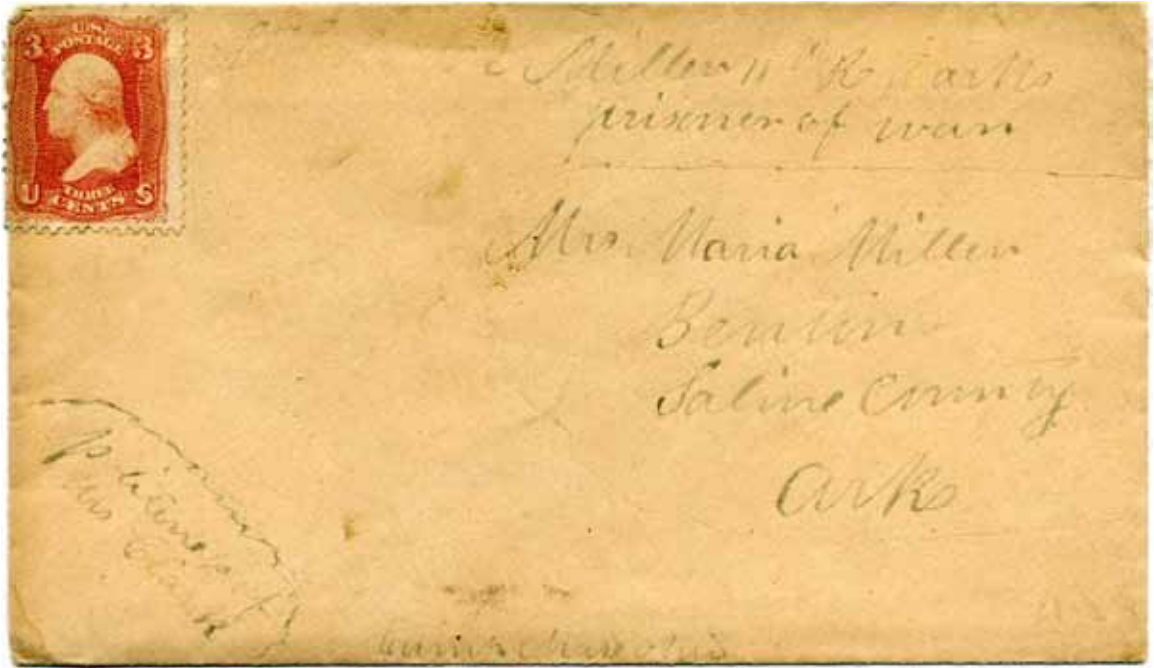 3 U.S. 3
POSTAGE
U THREE S
CENTS
Miller 11th R Arks
prisoner of war
Mrs. Maria Miller
Benton
Saline County
Ark
politeness of
Mrs Clark